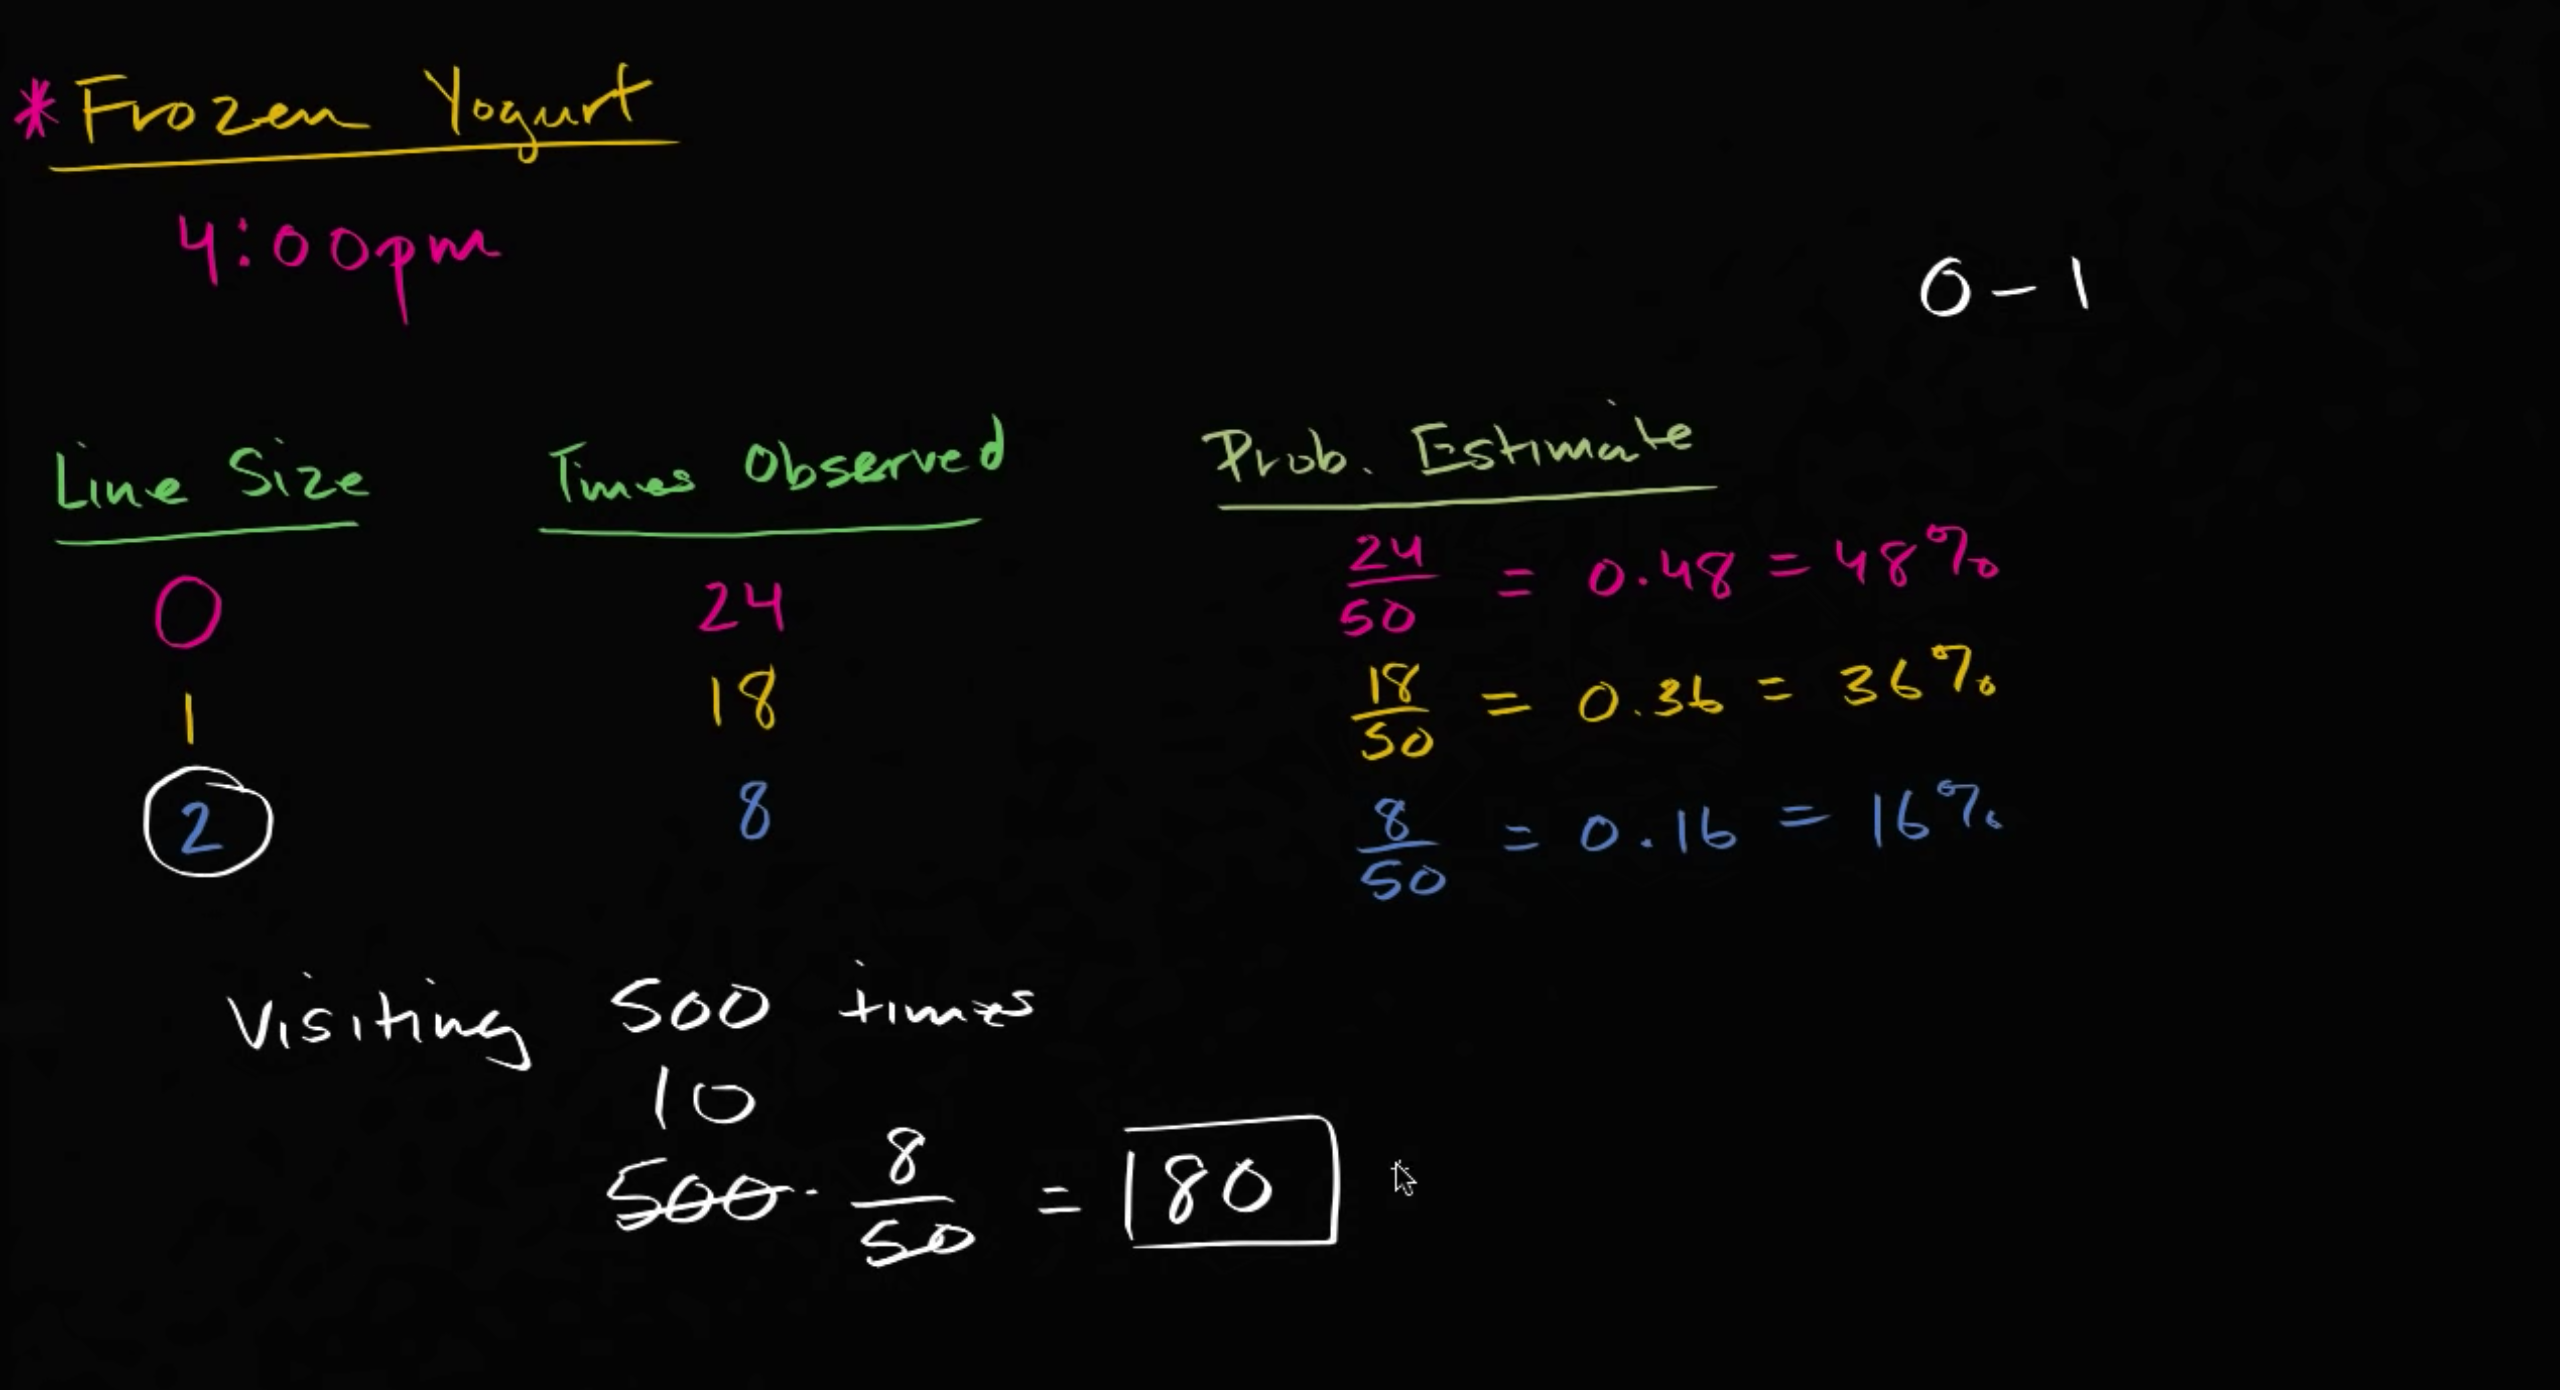 * Frozen Yogurt
4:00pm
0 - 1
Line Size Times Observed Prob. Estimate
0 24 24/50 = 0.48 = 48%
1 18 18/50 = 0.36 = 36%
2 8 8/50 = 0.16 = 16%
Visiting 500 times
10
500 · 8/50 = 80